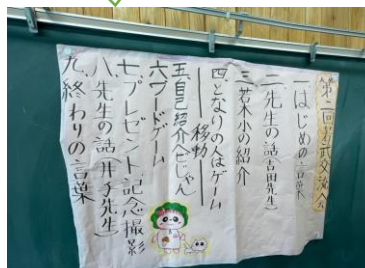 第二回若示交流会
一はじめの言葉
二先生の話(吉田先生)
三若木小の紹介
四となりの人はゲーム
移動
五自己紹介へびじゃん
六ワードゲーム
七プレゼント記念撮影
八先生の話(井手先生)
九終わりの言葉